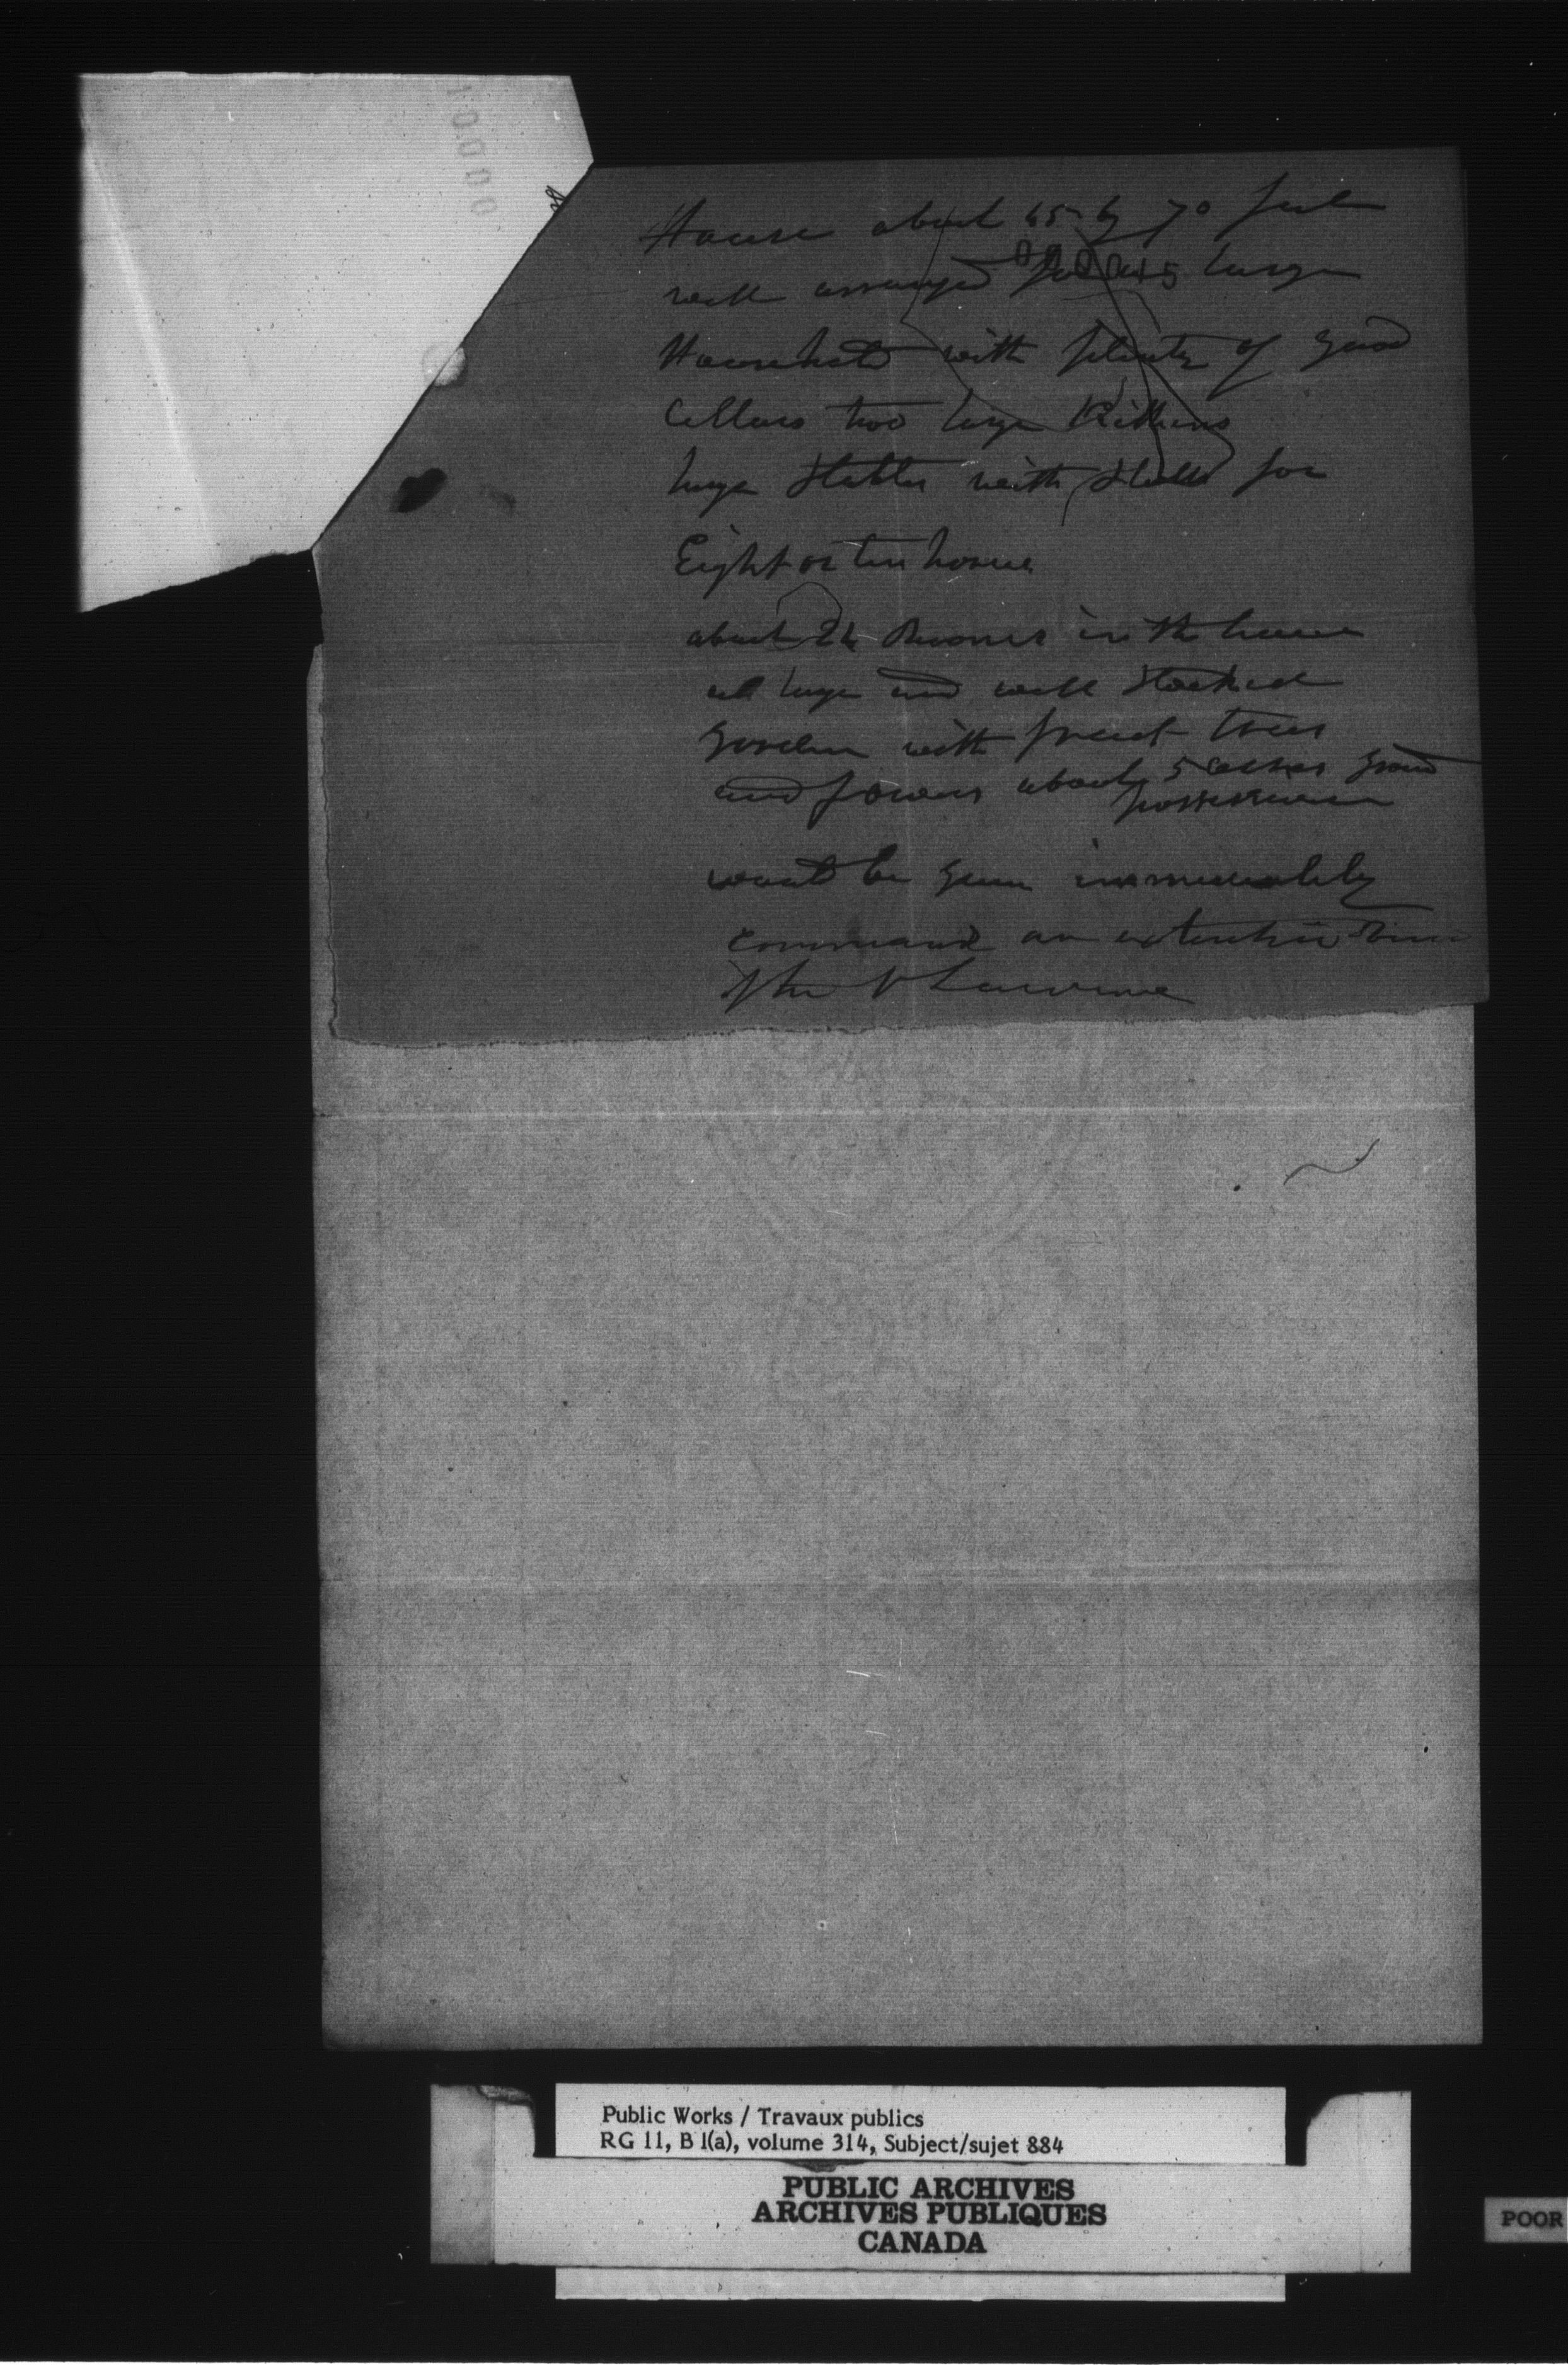 10000
House about 65 by 70 feet
000045
well arranged for a large
Household with plenty of good
Cellars two large Kitchens
large Stables with Stalls for
Eight or ten horses
about 24 Rooms in the house
all large and well Stocked
Garden with fruit trees
and flowers about 5 acres ground
possession
would be given immediately
command an extensive view
of the St Lawrence
Public Works / Travaux publics
RG 11, B 1(a), volume 314, Subject/sujet 884
PUBLIC ARCHIVES
ARCHIVES PUBLIQUES
CANADA
POOR